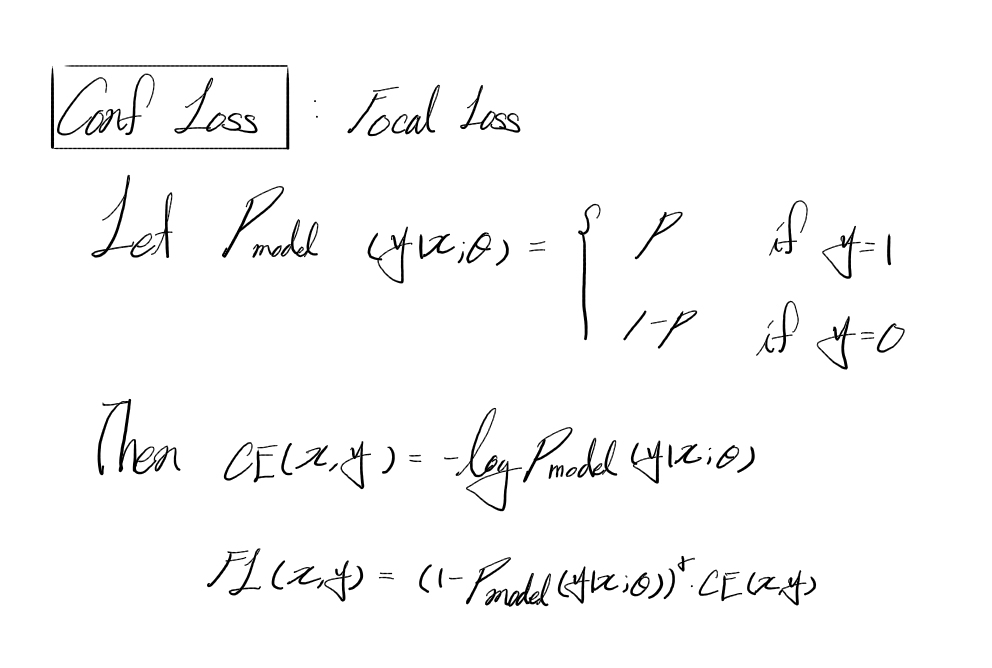 Conf Loss : Focal Loss
Let P_model (y|x;θ) = { p if y=1
1-p if y=0
Then CE(x,y) = -log P_model (y|x;θ)
FL(x,y) = (1-P_model(y|x;θ))^γ · CE(x,y)